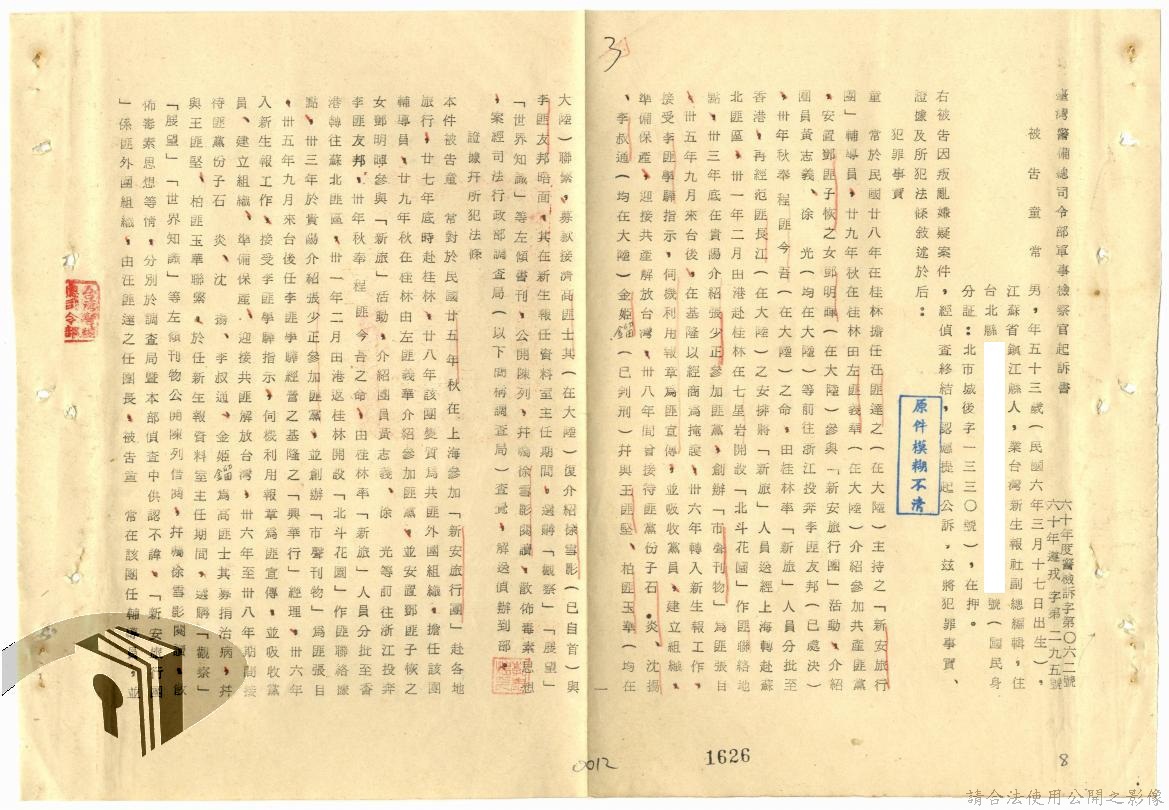 臺灣警備總司令部軍事檢察官起訴書
六十年度警檢訴字第〇六二號
六十年蓮戎字第二九五號
被告童常 男,年五十三歲(民國六年三月十七日出生),
江蘇省鎮江縣人,業台灣新生報社副總編輯,住
台北縣 號(國民身
分証:北市城後字一三三〇號),在押。
右被告因叛亂嫌疑案件,經偵查終結,認應提起公訴,茲將犯罪事實、
證據及所犯法條敘述於后:
犯罪事實
童 常於民國廿八年在桂林擔任在匪達之(在大陸)主持之「新安旅行
團」輔導員,廿九年秋在桂林由左匪義華(在大陸)介紹參加共產匪黨
,安置鄧匪子恢之女鄧明暉(在大陸)參與「新安旅行團」活動,介紹
團員黃志義、徐 光(均在大陸)等前往浙江投奔李匪友邦(已處決)
,卅年秋奉程匪今吾(在大陸)之命,由桂林率「新旅」人員分批至
香港,再經范匪長江(在大陸)之安排將「新旅」人員逸經上海轉赴蘇
北匪區,卅一年二月由港赴桂林在七星岩開設「北斗花園」作匪聯絡地
點,卅三年底在貴陽介紹張少正參加匪黨,創辦「市聲刊物」為匪張目
,卅五年九月來台後,在基隆以經商為掩護,卅六年轉入新生報工作,
接受李匪學驊指示,伺機利用報章為匪宣傳,並吸收黨員,建立組織,
準備保產,迎接共產解放台灣,卅八年間曾接待匪黨份子石 炎、沈揚
、李叔通(均在大陸)金姬鎦(已判刑)幷與王匪堅、柏匪玉華(均在
一
大陸)聯繫,募款接濟高匪士其(在大陸)復介紹徐雪影(已自首)與
李匪友邦晤面,其在新生報任資料室主任期間,選購「觀察」「展望」
「世界知識」等左傾書刊,公開陳列,幷囑徐雪影閱讀,散佈毒素思想
,案經司法行政部調查局(以下簡稱調查局)查覺,解送偵辦到部。
證據幷所犯法條
本件被告童 常對於民國廿五年秋在上海參加「新安旅行團」赴各地
旅行,廿七年底時赴桂林,廿八年該團變質為共匪外圍組織,擔任該團
輔導員,廿九年秋在桂林由左匪義華介紹參加匪黨,並安置鄧匪子恢之
女鄧明暉參與「新旅」活動,介紹團員黃志義、徐 光等前往浙江投奔
李匪友邦,卅年秋奉程匪今吾之命,由桂林率「新旅」人員分批至香
港轉往蘇北匪區,卅一年二月由港返桂林開設「北斗花園」作匪聯絡據
點,卅三年於貴陽介紹張少正參加匪黨,並創辦「市聲刊物」為匪張目
,卅五年九月來台後任李匪學驊經營之基隆之「興華行」經理,卅六年
入新生報工作,接受李匪學驊指示,伺機利用報章為匪宣傳,並吸收黨
員、建立組織、準備保產、迎接共匪解放台灣,卅六年至卅八年期間接
待匪黨份子石 炎、沈 揚、李叔通、金姬鎦為高匪士其募捐治病,幷
與王匪堅、柏匪玉華聯繫,於任新生報資料室主任期間,選購「觀察」
「展望」「世界知識」等左傾刊物公開陳列借閱,幷囑徐雪影閱讀,散
佈毒素思想等情,分別於調查局暨本部偵查中供認不諱,「新安旅行團
」係匪外圍組織,由汪匪達之任團長,被告童 常在該團任輔導員,並
原件模糊不清
3
8
0012
1626
請合法使用公開之影像